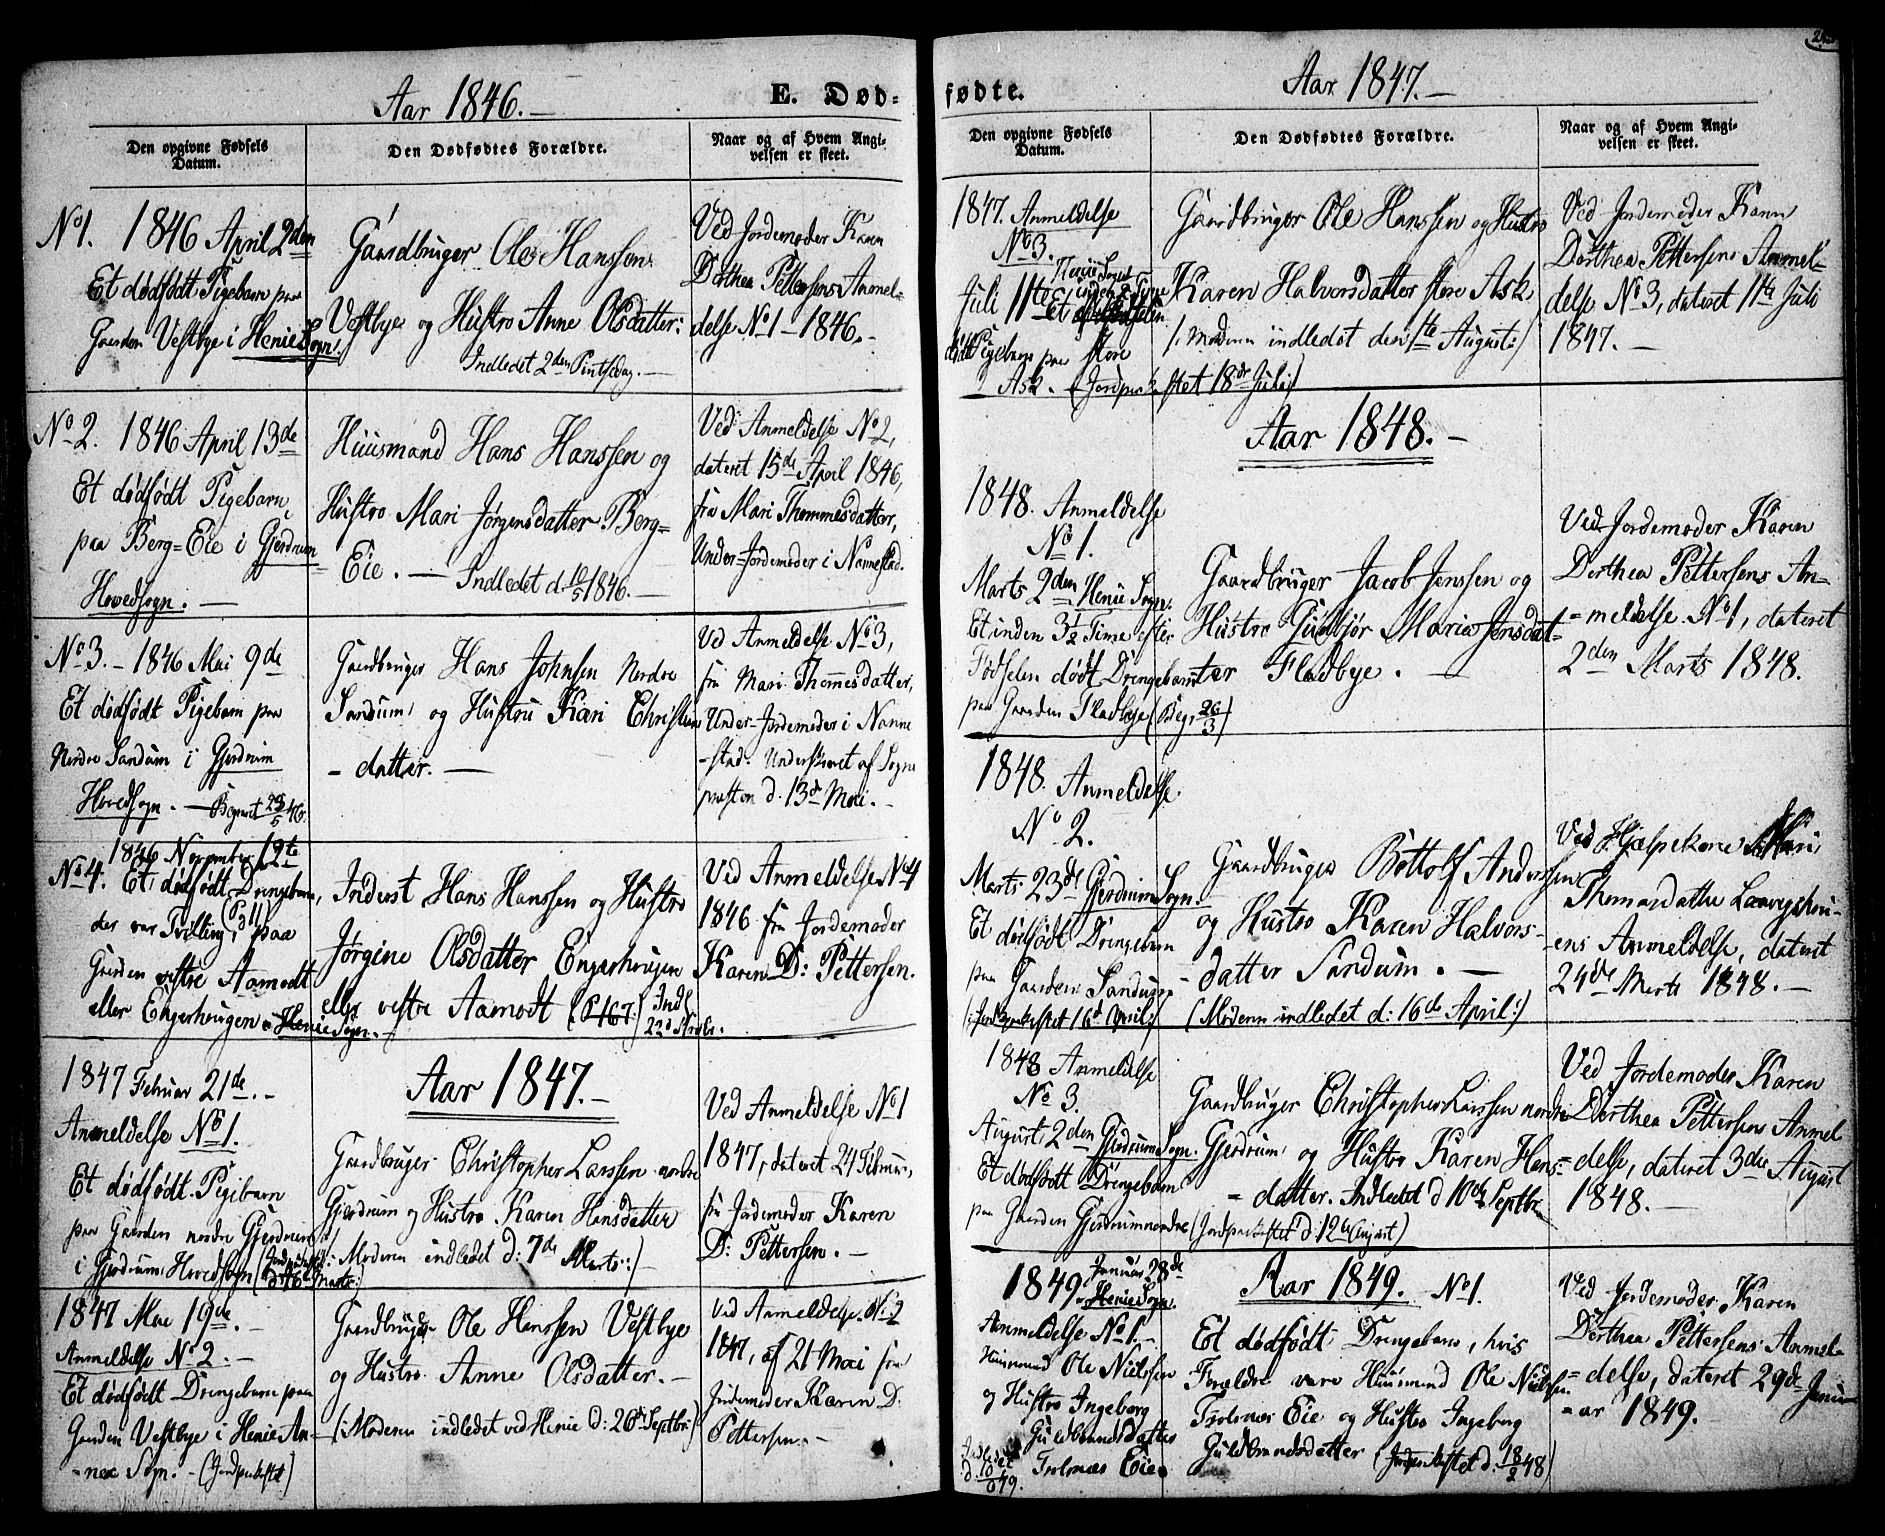 Aar 1846.
E. Død-
Den opgivne Fødsels
Datum.
Den Dødfødtes Forældre.
Naar og af Hvem Angi-
velsen er skeet.
No 1. 1846 April 2den
Et dødfødt Pigebarn paa
Gaarden Vestbye i Henie Sogn.
Gaardbruger Ole Hanssen
Vestbye og Hustro Anne Olsdatter:
Indledet 2den Pintsedag.
Ved Jordemoder Karen
Dorthea Pettersens Anmel-
delse No 1 - 1846.
No 2. 1846 April 13de
Et dødfødt Pigebarn,
paa Berg-Eie i Gjerdrum
Hovedsogn.
Huusmand Hans Hanssen og
Hustro Mari Jørgensdatter Berg=
Eie. - Indledet d. 10/5 1846.
Ved Anmeldelse No 2,
dateret 15de April 1846,
fra Mari Thommesdatter,
Under-Jordemoder i Nannestad.
No 3. - 1846 Mai 9de
Et dødfødt Pigebarn paa
Nordre Sandum i Gjerdrum
Hovedsogn. -
Gaardbruger Hans Johnsen Nordre
Sandum og Hustru Kari Christens
- datter.
Ved Anmeldelse No 3,
fra Mari Thommesdatter,
Under-Jordemoder i Nanne
-stad. Underskrevet af Sogne
præsten d. 13de Mai.
1846 November 12te
No 4. Et dødfødt Drengebarn,
der var Tvilling, paa
Gaarden vestre Aamodt
eller Engerhougen - Henie Sogn.
Inderst Hans Hanssen og Hustro
Jørgine Olsdatter Engerhougen
eller vestre Aamodt
Ved Anmeldelse No 4
1846 fra Jordemoder
Karen D: Pettersen.
1847 Februar 21de.
Anmeldelse No 1.
Et dødfødt Pigebarn
paa Gaarden nordre Gjerdrum
i Gjerdrum Hovedsogn
Aar 1847.
Gaardbruger Christopher Larssen nordre
Gjerdrum og Hustro Karen Hansdatter
(Moderen indledet d: 7de Marts:)
Ved Anmeldelse No 1
1847, dateret 24 Februar,
fra Jordemoder Karen
D: Pettersen.
1847 Mai 19de.
Anmeldelse No 2.
Et dødfødt Drengebarn paa
Gaarden Vestbye i Henie An-
-nex Sogn. - (Jordpaakastet)
Gaardbruger Ole Hanssen Vestbye
og Hustro Anne Olsdatter.
(Moderen indledet ved Henie d: 26de Septbr:)
Ved Anmeldelse No 2
1847, af 21 Mai fra
Jordemoder Karen D.
Pettersen.
fødte.
Aar 1847.
Den opgivne Fødsels
Datum.
Den Dødfødtes Forældre.
Naar og af Hvem Angi-
velsen er skeet.
1847. Anmeldelse
No 3.
Juli 11te
Pigebarn paa store
Ask. - (Jordpaakastet 18de Juli)
Gaardbruger Ole Hanssen og Hustro
Karen Halvorsdatter store Ask
(Moderen indledet den 1ste August:)
Ved Jordemoder Karen
Dorthea Pettersens Anmel-
delse No 3, dateret 11te Juli
1847.
Aar 1848.
1848. Anmeldelse
No 1.
Marts 2den Henie Sogn.
Et inden 3 1/2 Time efter
Fødselen dødt Drengebarn
paa Gaarden Fladbye (Begr. 26/3)
Gaardbruger Jacob Jenssen og
Hustro Gudbjør Maria Jensdat-
ter Fladbye.
Ved Jordemoder Karen
Dorthea Pettersens An-
meldelse No 1, dateret
2den Marts 1848.
1848. Anmeldelse
No 2.
Marts 23de Gjerdrum Sogn.
Et dødfødt Drengebarn
paa Gaarden Sandum
(Jordpaakastet 16de April)
Gaardbruger Bottolf Anderssen
og Hustro Karen Halvors-
datter Sandum.
(Moderen indledet d: 16de April:)
Ved Hjælpekone Mari
Thomasdatter
ens Anmeldelse, dateret
24de Marts 1848.
1848 Anmeldelse
No 3.
August 2den Gjerdrum Sogn.
Et dødfødt Drengebarn
paa Gaarden Gjerdrum nordre (Jordpaakastet d: 12te August)
Gaardbruger Christopher Larssen nordre
Gjerdrum og Hustro Karen Hans=
= datter. Indledet d 10de Septbr:
Ved Jordemoder Karen
Dorthea Pettersens Anmel
= delse, dateret 3die August
1848.
1849 Januar 28de
Henie Sogn.
Anmeldelse No 1.
Huusmand Ole Nielssen
og Hustro Ingeborg
Guldbrandsdatter
Trolsnæs Eie
Aar 1849. No 1.
Et dødfødt Drengebarn, hvis
Forældre vare Huusmand Ole Nielssen
Trolsnæs Eie og Hustro Ingeborg
Guldbrandsdatter (Jordpaakastet d: 18/2 48)
Ved Jordemoder Karen
Dorthea Pettersens Anmel-
= delse, dateret 29de Janu-
= ar 1849.